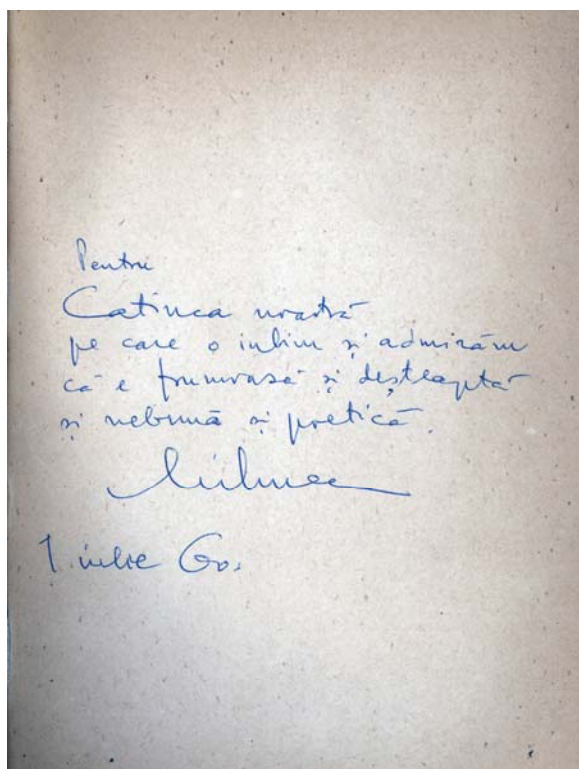 Pentru
Catinca noastră
pe care o iubim și admirăm
că e frumoasă și deșteaptă
și nebună și poetică.
1 iulie 60.